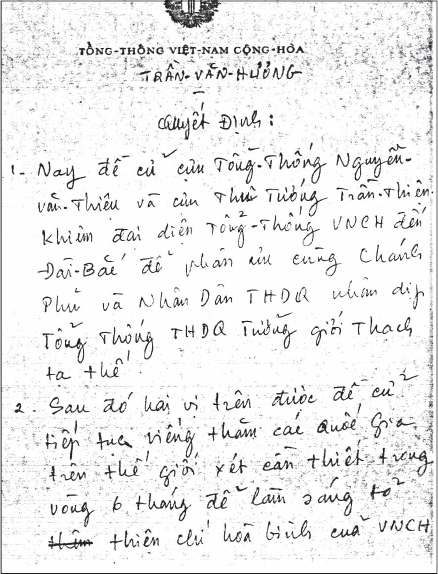 TỔNG-THỐNG VIỆT-NAM CỘNG-HÒA
TRẦN-VĂN-HƯƠNG
Quyết Định:
1- Nay đề cử cựu Tổng-Thống Nguyễn-
văn-Thiệu và cựu Thủ Tướng Trần-Thiện-
Khiêm đại diện Tổng-Thống VNCH đến
Đài-Bắc để phân ưu cùng Chánh
Phủ và Nhân Dân THDQ nhân dịp
Tổng Thống THDQ Tưởng giới Thạch
tạ thế.
2. Sau đó hai vị trên được đề cử
tiếp tục viếng thăm các Quốc Gia
trên thế giới xét cần thiết trong
vòng 6 tháng để làm sáng tỏ
thiện chí hoà bình của VNCH